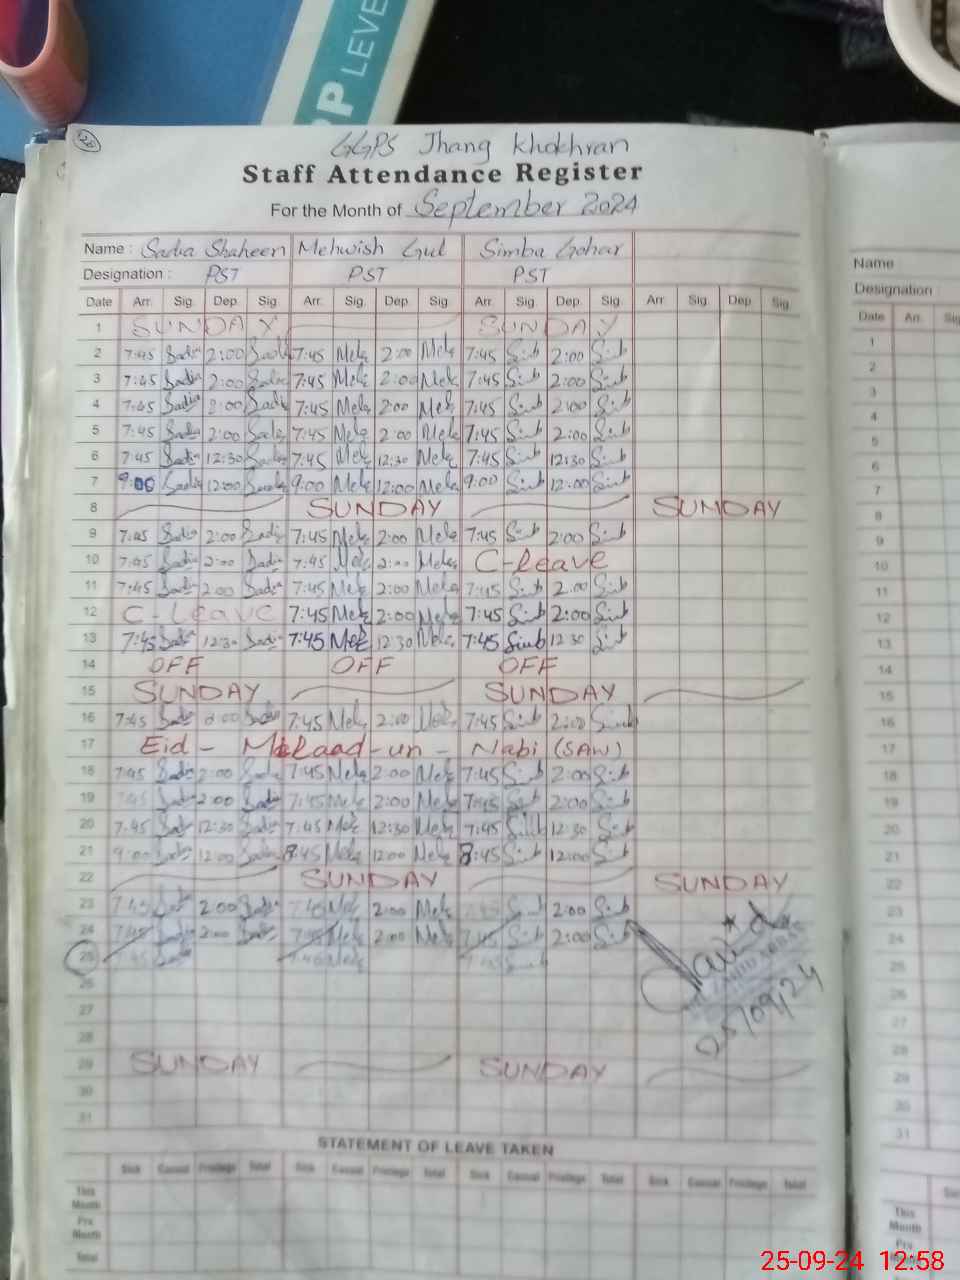 PP LEVE
GGPS Jhang Khokhran
Staff Attendance Register
For the Month of September 2024
Name : Sadia Shaheen Mehwish Gul Simba Gohar
Designation : PST PST PST
Date Arr. Sig. Dep. Sig. Arr. Sig. Dep. Sig. Arr. Sig. Dep. Sig. Arr. Sig. Dep. Sig.
1 SUNDAY SUNDAY
2 7:45 Sadia 2:00 7:45 Mek 2:00 Mek 7:45 Simb 2:00 Simb
3 7:45 Sadia 2:00 Sadia 7:45 Mek 2:00 Mek 7:45 Simb 2:00 Simb
4 7:45 Sadia 2:00 Sadia 7:45 Mek 2:00 Mek 7:45 Simb 2:00 Simb
5 7:45 Sadia 2:00 7:45 Mek 2:00 Mek 7:45 Simb 2:00 Simb
6 7:45 Sadia 12:30 Sadia 7:45 Mek 12:30 Mek 7:45 Simb 12:30 Simb
7 9:00 Sadia 12:00 9:00 Mek 12:00 Mek 9:00 Simb 12:00 Simb
8 SUNDAY SUNDAY
9 7:45 Sadia 2:00 Sadia 7:45 Mek 2:00 Mek 7:45 Simb 2:00 Simb
10 7:45 Sadia 2:00 Sadia 7:45 Mek 2:00 Mek C-Leave
11 7:45 Sadia 2:00 Sadia 7:45 Mek 2:00 Mek 7:45 Simb 2:00 Simb
12 C-Leave 7:45 Mek 2:00 Mek 7:45 Simb 2:00 Simb
13 7:45 Sadia 12:30 Sadia 7:45 Mek 12:30 Mek 7:45 Simb 12:30 Simb
14 OFF OFF OFF
15 SUNDAY SUNDAY
16 7:45 2:00 Sadia 7:45 Mek 2:00 Mek 7:45 Simb 2:00 Simb
17 Eid - Milaad-un- Nabi (SAW)
18 7:45 Sadia 2:00 Sadia 7:45 Mek 2:00 Mek 7:45 Simb 2:00 Simb
19 7:45 2:00 7:45 Mek 2:00 Mek 7:45 2:00 Simb
20 7:45 12:30 Sadia 7:45 Mek 12:30 Mek 7:45 12:30
21 9:00 12:00 Sadia 8:45 Mek 12:00 Mek 8:45 Simb 12:00 Simb
22 SUNDAY SUNDAY
23 7:45 2:00 Sadia 7:45 Mek 2:00 Mek 7:45 2:00 Simb
24 7:45 2:00 7:45 Mek 2:00 Mek 7:45 2:00 Simb
25 7:45 7:45 Mek 7:45
26
27
28
29 SUNDAY SUNDAY
30
31
STATEMENT OF LEAVE TAKEN
Sick Casual Privilege Total Sick Casual Privilege Total Sick Casual Privilege Total Sick Casual Privilege Total
This Month
Pre Month
Total
Name
Designation
Date Arr. Sig
1
2
3
4
5
6
7
8
9
10
11
12
13
14
15
16
17
18
19
20
21
22
23
24
25
26
27
28
29
30
31
This Month
Pre Month
25-09-24 12:58